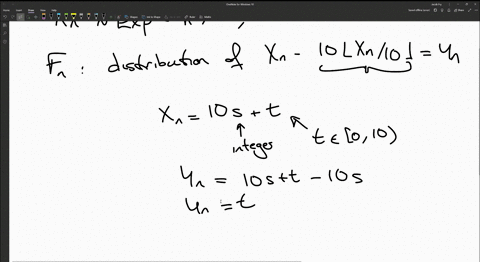 Exp
Fn : distribution of Xn - 10⌊Xn/10⌋ = yn
Xn = 10s + t
integers
t ∈ [0, 10)
yn = 10s+t - 10s
yn = t